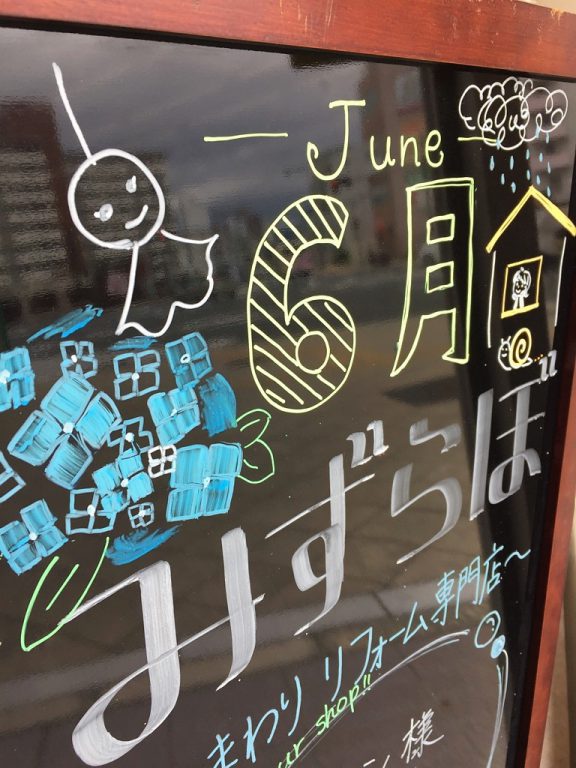 June
6月
みずらぼ
まわり リフォーム専門店〜
ur shop!!
様